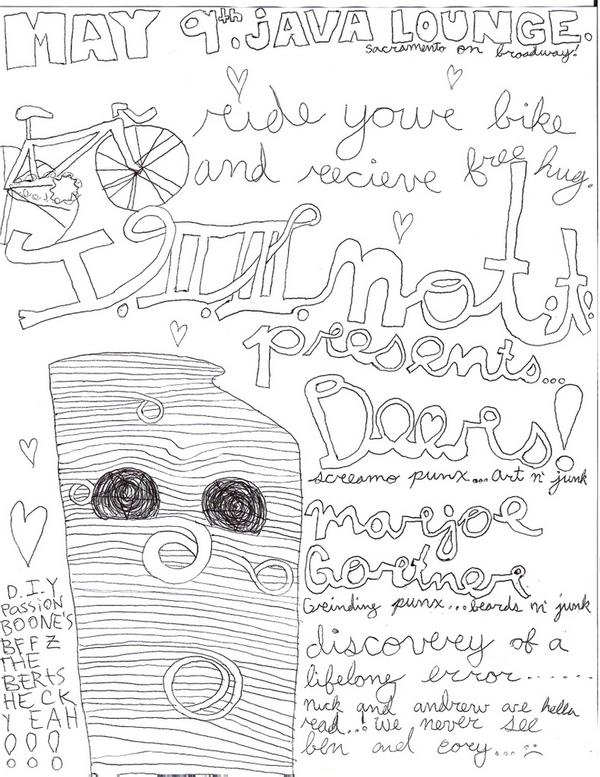 MAY 9th. JAVA LOUNGE.
sacramento on broadway!
ride your bike
and recieve free hug.
not
presents...
Deers!
screamo punx... Art n' junk
Marjoe
Gortner
Grinding punx...beards n' junk
discovery of a
lifelong error......
nick and andrew are hella
read..! we never see
ben and cory...
D.I.Y
PASSION
BOONE'S
BFFZ
THE
BERTS
HECK
YEAH
!!!